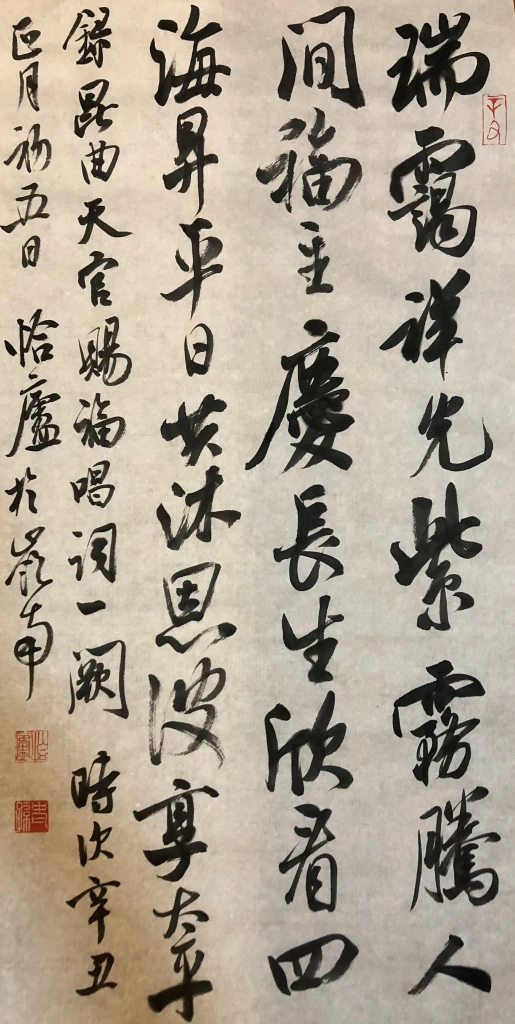 瑞靄祥光紫霧騰人
間福主慶長生欣看四
海昇平日共沐恩波享太平
錄昆曲天官賜福唱詞一闕 時次辛丑
正月初五日 怡廬於嶺南